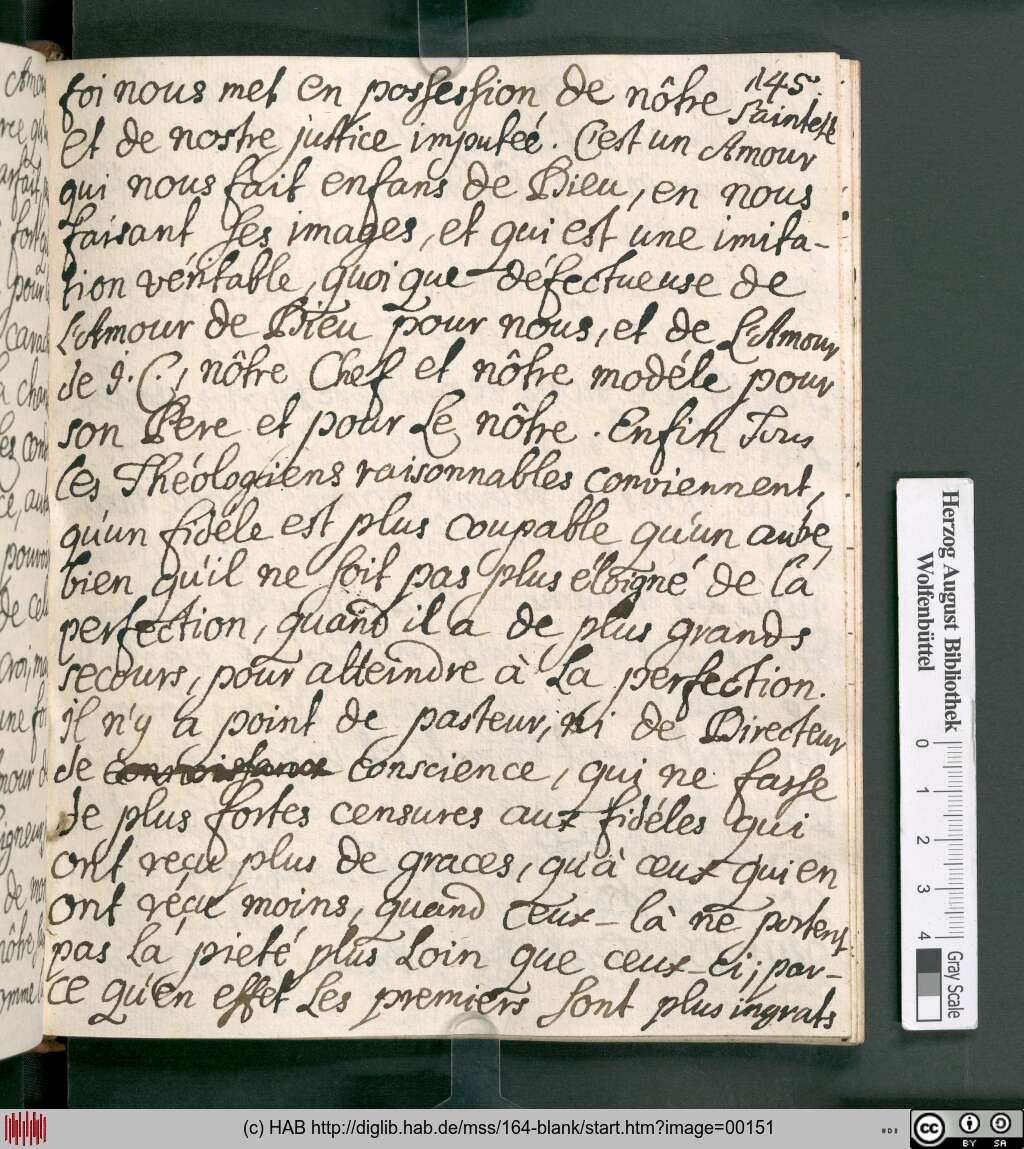 145.
foi nous met en possession de nôtre Sainteté
et de nostre justice imputeé. C'est un Amour
qui nous fait enfans de Dieu, en nous
faisant ses images, et qui est une imita-
tion véritable, quoi que défectueuse de
L'Amour de Dieu pour nous, et de L'Amour
de J. C., nôtre Chef et nôtre modéle pour
son Pere et pour Le nôtre. Enfin Tous
Les Théologiens raisonnables conviennent,
qu'un fidéle est plus coupable qu'un autre,
bien qu'il ne soit pas plus éloigné de La
perfection, quand il a de plus grands
secours, pour atteindre à La perfection.
il n'y a point de pasteur, ni de Directeur
de conscience, qui ne fasse
de plus fortes censures aux fidéles qui
ont reçu plus de graces, qu'à ceux qui en
ont réçu moins, quand ceux-là ne portent
pas la pieté plus Loin que ceux-ci; par-
ce qu'en effet Les premiers sont plus ingrats
Herzog August Bibliothek
Wolfenbüttel
0 1 2 3 4
Gray Scale
(c) HAB http://diglib.hab.de/mss/164-blank/start.htm?image=00151
cc BY SA